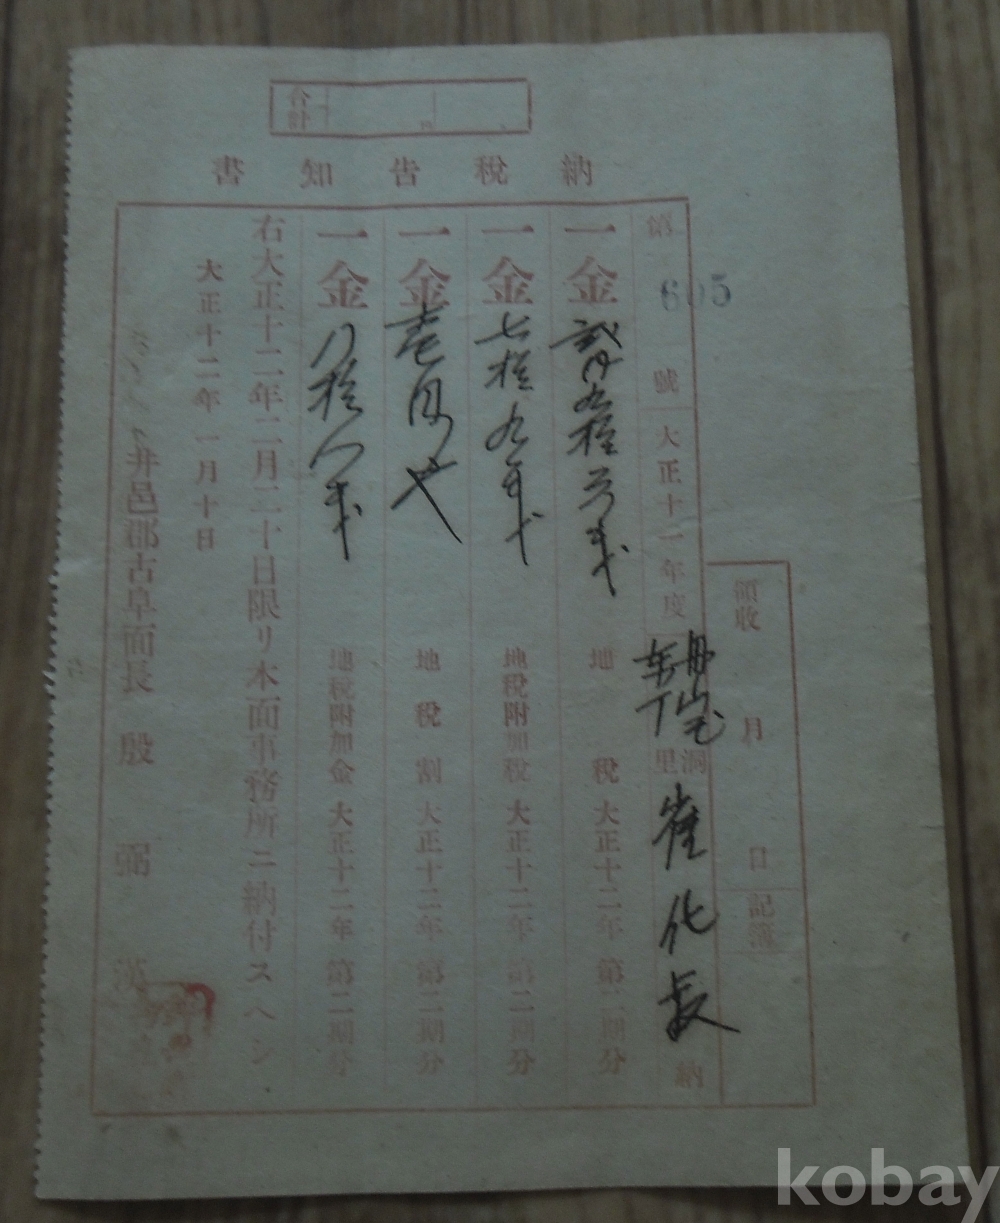 合計 円
納税告知書
領收 月 日 記簿
第 605 號 大正十一年度
洞里 崔化 納
一金 貳円九拾 戋 地税 大正十二年 第二期分
一金 七拾九戋 地税附加税 大正十二年 第二期分
一金 壱円 也 地税割 大正十二年 第二期分
一金 八拾八戋 地税附加金 大正十二年 第二期分
右大正十二年二月二十日限リ本面事務所ニ納付スヘシ
大正十二年一月十日
井邑郡古阜面長 殷弼漢
kobay